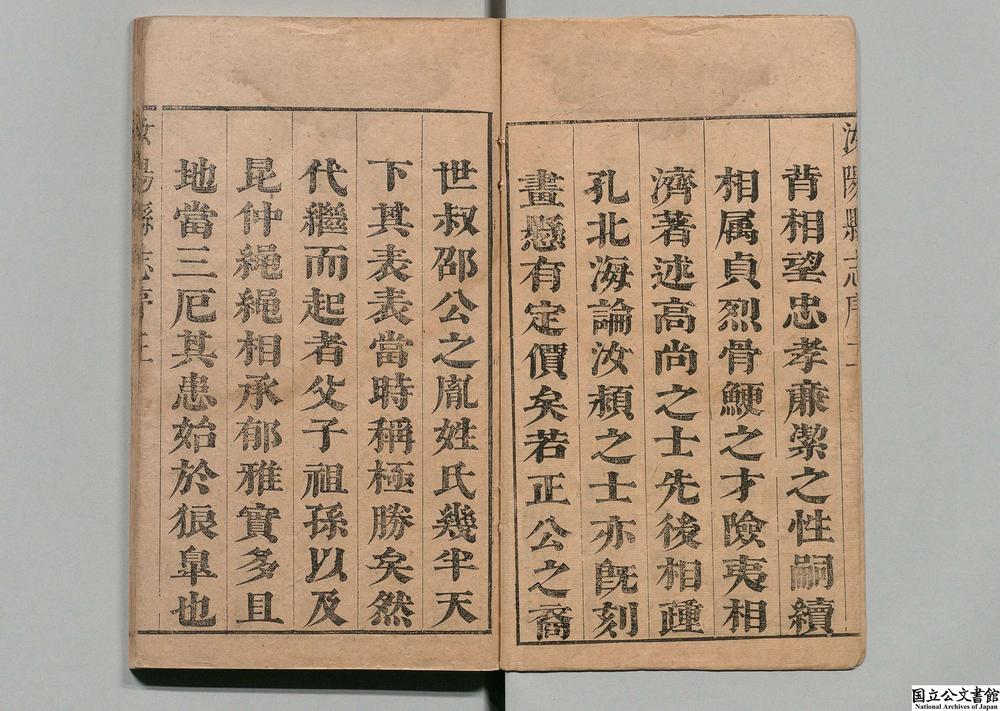 汝陽縣志序
背相望忠孝亷潔之性嗣續
相属貞烈骨鯁之才險夷相
濟著述高尚之士先後相踵
孔北海論汝潁之士亦既刻
畫懸有定價矣若正公之裔
世叔邵公之胤姓氏幾半天
下其表表當時稱極勝矣然
代繼而起者父子祖孫以及
昆仲繩繩相承郁雅實多且
地當三厄其患始於狼臯也
汝陽縣志序
国立公文書館
National Archives of Japan